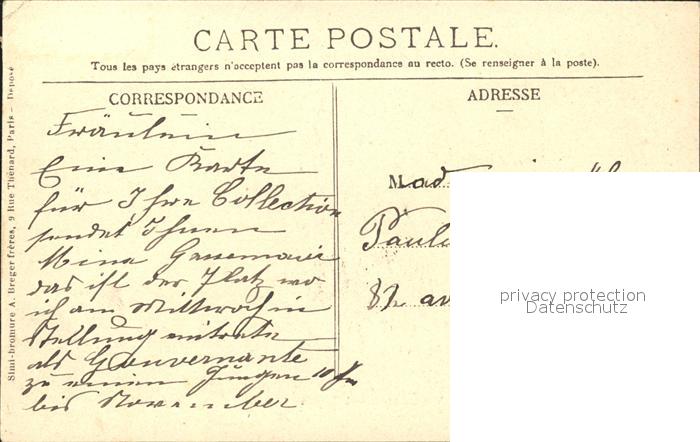 CARTE POSTALE.
Tous les pays étrangers n'acceptent pas la correspondance au recto. (Se renseigner à la poste).
CORRESPONDANCE
Fräulein
Eine Karte
für Ihre Collection
sendet Ihnen
Mina
das ist der Platz wo
ich am Mittwoch in
Stellung eintrete
als Gouvernante
zu einem Jungen 10
bis November
ADRESSE
Mad
Paul
82 av
privacy protection
Datenschutz
Simi-bromure A. Breger frères, 9 Rue Thénard, Paris - Déposé